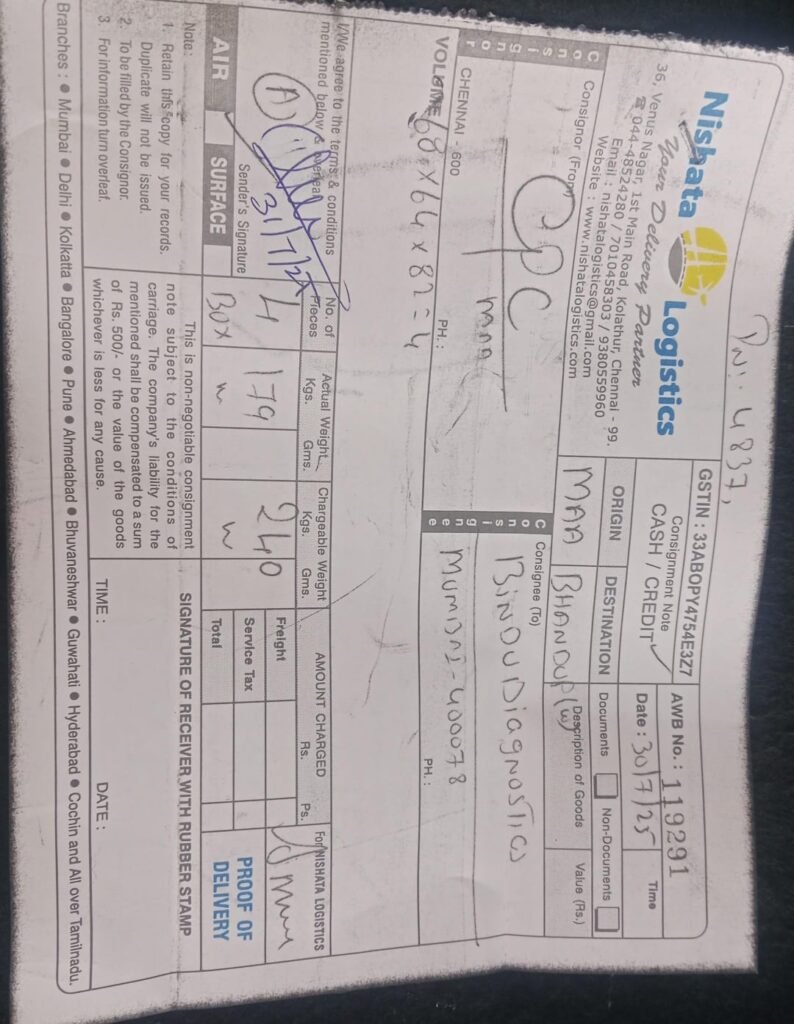 Nishata Logistics
Your Delivery Partner
36, Venus Nagar, 1st Main Road, Kolathur, Chennai - 99.
☎ 044-48524280 / 7010458303 / 9380559960
Email : nishatalogistics@gmail.com
Website : www.nishatalogistics.com
4837,
GSTIN : 33ABOPY4754E3Z7
Consignment Note
CASH / CREDIT ✓
AWB No.: 119291
Date : 30/7/25
Time
ORIGIN
DESTINATION
MAA
BHANDUP (W)
Documents
Non-Documents
Description of Goods
Value (Rs.)
Consignor
Consignor (From)
CPC
CHENNAI - 600
PH.:
Consignee
Consignee (To)
BINDU DIAGNOSTICS
MUMBAI-400078
PH.:
VOLUME 68x64x82=4
I/We agree to the terms & conditions
mentioned below & overleaf
Sender's Signature
AIR
SURFACE
No. of
Pieces
4
BOX
Actual Weight
Kgs. Gms.
179
Chargeable Weight
Kgs. Gms.
240
AMOUNT CHARGED
Rs. Ps.
Freight
Service Tax
Total
For NISHATA LOGISTICS
PROOF OF
DELIVERY
Note:
1. Retain this copy for your records.
Duplicate will not be issued.
2. To be filled by the Consignor.
3. For information turn overleaf.
This is non-negotiable consignment
note subject to the conditions of
carriage. The company's liability for the
mentioned shall be compensated to a sum
of Rs. 500/- or the value of the goods
whichever is less for any cause.
SIGNATURE OF RECEIVER WITH RUBBER STAMP
TIME :
DATE :
Branches : ● Mumbai ● Delhi ● Kolkatta ● Bangalore ● Pune ● Ahmedabad ● Bhuvaneshwar ● Guwahati ● Hyderabad ● Cochin and All over Tamilnadu.